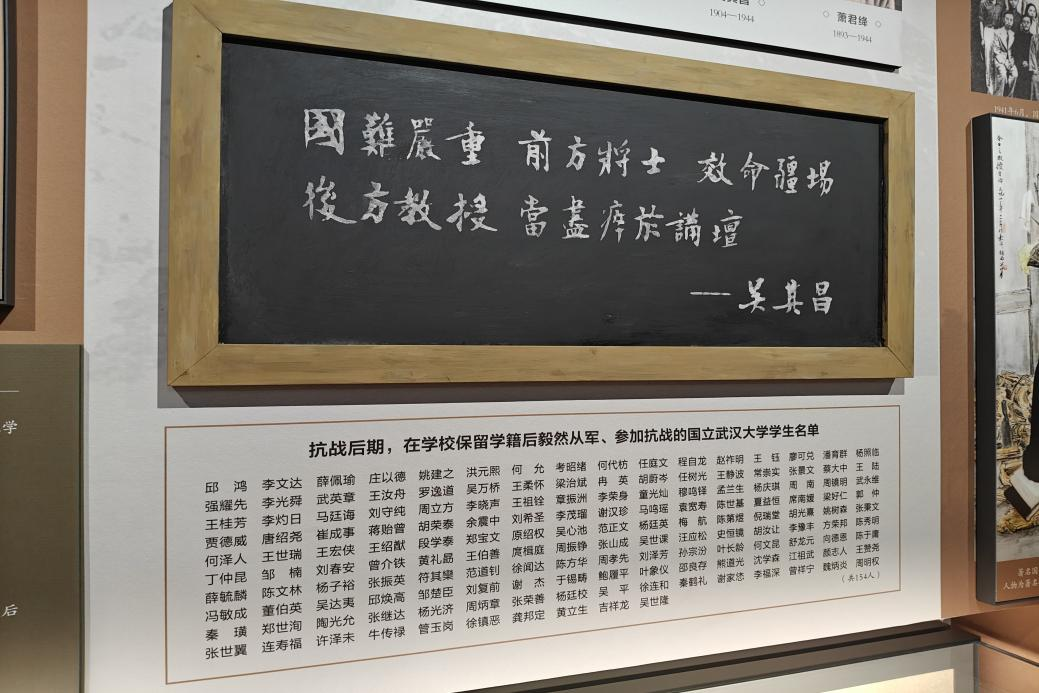 1904—1944
萧君绛
1893—1944
國難嚴重 前方將士 效命疆場
後方教授 當盡瘁於講壇
——吴其昌
抗战后期，在学校保留学籍后毅然从军、参加抗战的国立武汉大学学生名单
邱 鸿 李文达 薛佩瑜 庄以德 姚建之 洪元熙 何 允 考昭绪 何代枋 任庭文 程自龙 赵祚明 王 钰 廖可兑 潘育群 杨照临
强耀先 李光舜 武英章 王汝舟 罗逸道 吴万桥 王柔怀 梁治斌 冉 英 胡蔚岑 任树光 王静波 常崇实 张景文 蔡大中 王 陆
王桂芳 李灼日 马廷海 刘守纯 周立方 李晓声 王祖铨 章振洲 李荣身 童光灿 穆鸣铎 孟兰生 杨庆琪 周 南 周镜明 武永维
贾德威 唐绍尧 崔成事 蒋贻曾 胡荣泰 余震中 刘希圣 李茂瑠 谢汉珍 马鸣瑶 袁宽寿 陈世基 夏益恒 席南媛 梁好仁 郭 仲
何泽人 王世瑞 王宏侠 王绍猷 段学泰 郑宝文 原绍权 吴心池 范正文 杨廷英 梅 航 陈第煜 倪瑞堂 胡光熹 姚树森 张秉文
丁仲昆 邹 楠 刘春安 曾介铁 黄礼勗 王伯善 庹楫庭 周振铮 张山成 吴世课 汪应松 史恒镜 胡汝让 李豫丰 方荣邦 陈秀明
薛毓麟 陈文林 杨子裕 张振英 符其樊 范道钊 徐闻达 陈方华 周孝先 刘泽芳 孙宗汾 叶长龄 何文昆 舒龙元 向德恩 陈于庸
冯敏成 董伯英 吴达夷 邱焕高 邹楚臣 刘复前 谢 杰 于锡畴 鲍履平 叶象仪 邵良存 熊道光 沈学森 江祖武 颜志人 王赞尧
秦 璜 郑世洵 陶光允 张继达 杨光济 周炳章 张荣善 杨廷校 吴 平 徐连和 秦鹤礼 谢家恷 李福深 曾祥宁 魏炳炎 周明权
张世翼 连寿福 许泽未 牛传禄 管玉岗 徐镇恶 龚邦定 黄立生 吉祥龙 吴世隆
（共154人）
1941年6月，
学
后
著名国
人物为著名